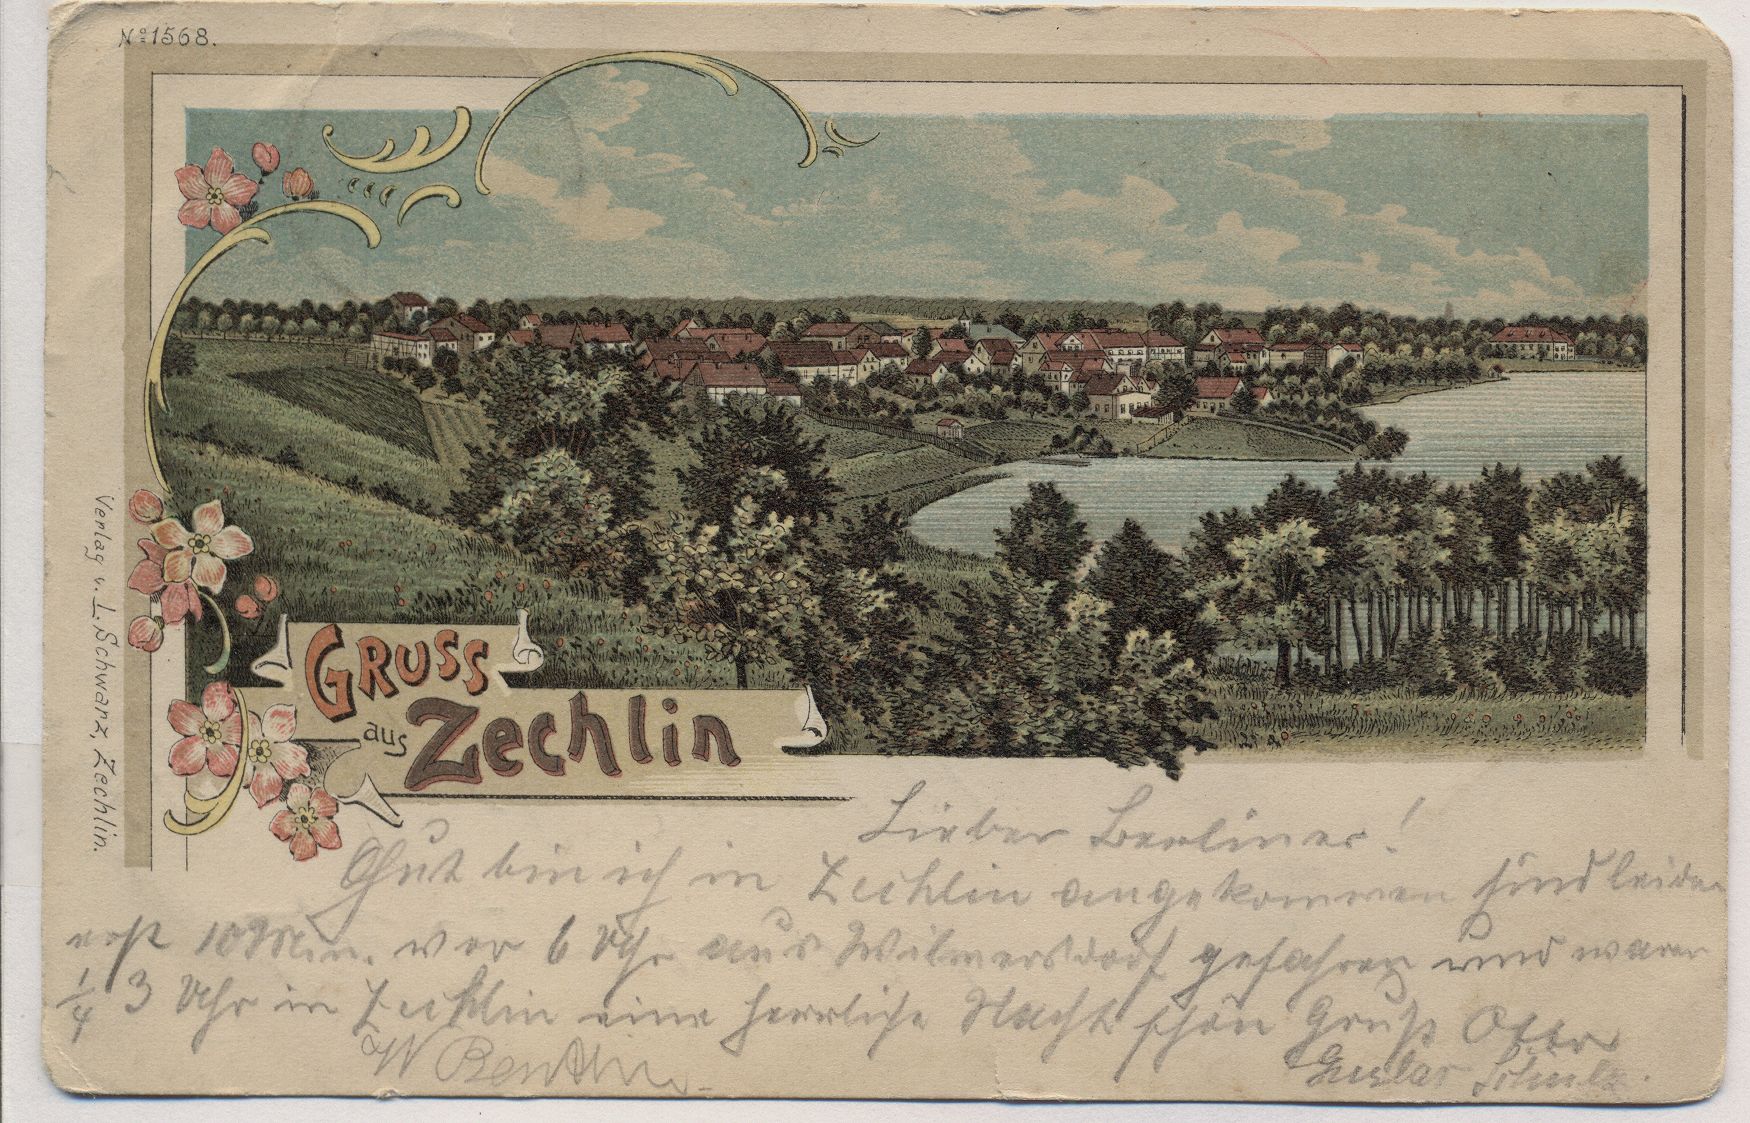 No 1568.
GRUSS
aus Zechlin
Verlag v. L. Schwarz, Zechlin.
Lieber Berliner!
Gut bin ich in Zechlin angekommen sind leider
erst 10 Min. vor 6 Uhr aus Wilmersdorf gefahren und waren
1/4 3 Uhr in Zechlin eine herrliche Nacht schön Gruß Otto
W
Gustav Schulz.